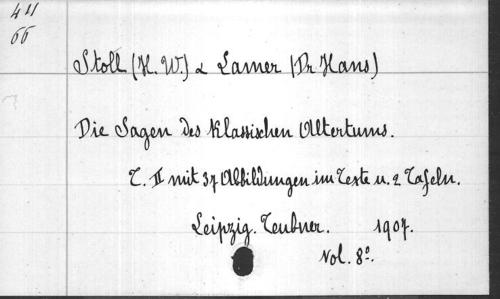 411
66
Stoll (H. W.) & Lamer (Dr Hans)
Die Sagen des klassischen Altertums.
T. II mit 37 Abbildungen im Texte u. 2 Tafeln.
Leipzig. Teubner. 1907.
Vol. 8º.